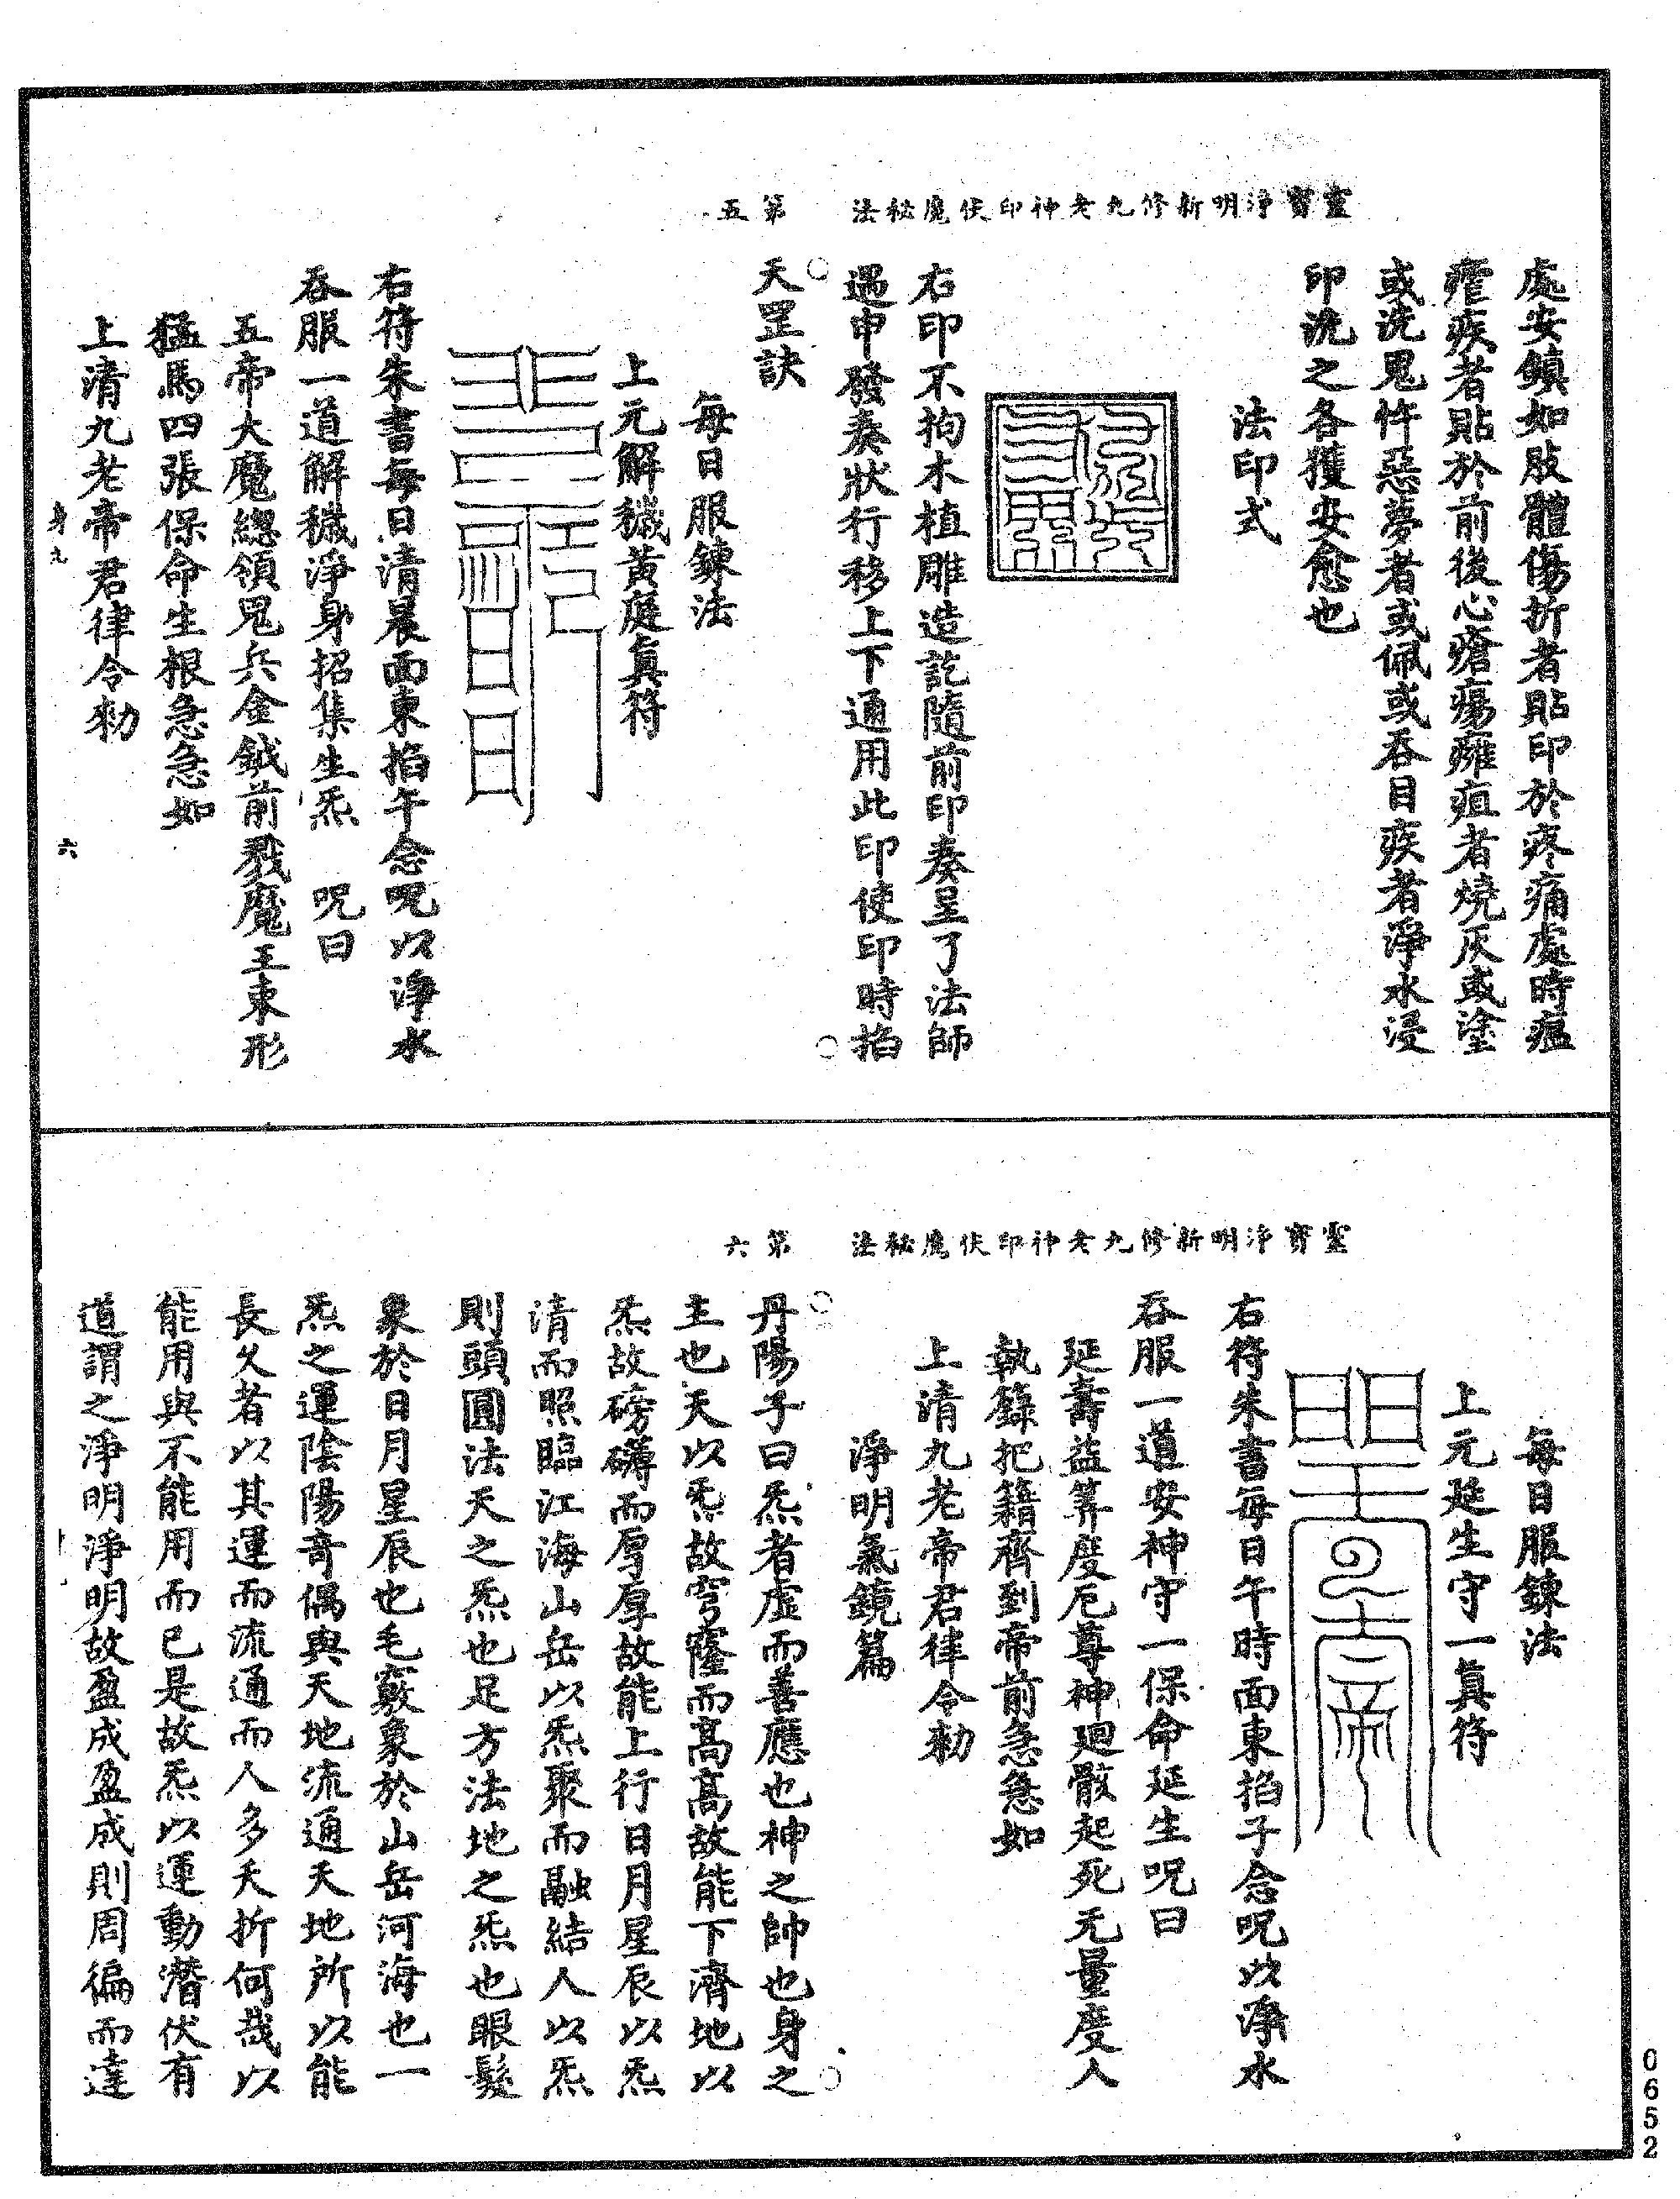 靈寶淨明新修九老神印伏魔秘法　第五
處安鎮如肢體傷折者貼印於疼痛處時瘟
瘧疾者貼於前後心瘡瘍癰疽者燒灰或塗
或洗鬼忤惡夢者或佩或吞目疾者淨水浸
印洗之各獲安愈也
法印式
右印不拘木植雕造訖隨前印奏呈了法師
遇申發奏狀行移上下通用此印使印時掐
天罡訣
每日服鍊法
上元解穢黃庭真符
右符朱書每日清晨面東掐午念呪以淨水
吞服一道解穢淨身招集生炁　呪曰
五帝大魔總領鬼兵金鉞前戮魔王束形
猛馬四張保命生根急急如
上清九老帝君律令勑
身九　六
靈寶淨明新修九老神印伏魔秘法　第六
每日服鍊法
上元延生守一真符
右符朱書每日午時面東掐子念呪以淨水
吞服一道安神守一保命延生呪曰
延壽益筭度厄尊神廻骸起死无量度人
執籙把籍齊到帝前急急如
上清九老帝君律令勑
淨明氣鏡篇
丹陽子曰炁者虛而善應也神之帥也身之
主也天以炁故穹窿而高高故能下濟地以
炁故磅礴而厚厚故能上行日月星辰以炁
清而照臨江海山岳以炁聚而融結人以炁
則頭圓法天之炁也足方法地之炁也眼髮
象於日月星辰也毛竅象於山岳河海也一
炁之運陰陽奇偶與天地流通天地所以能
長久者以其運而流通而人多夭折何哉以
能用與不能用而已是故炁以運動潛伏有
道謂之淨明淨明故盈成盈成則周徧而達
0652